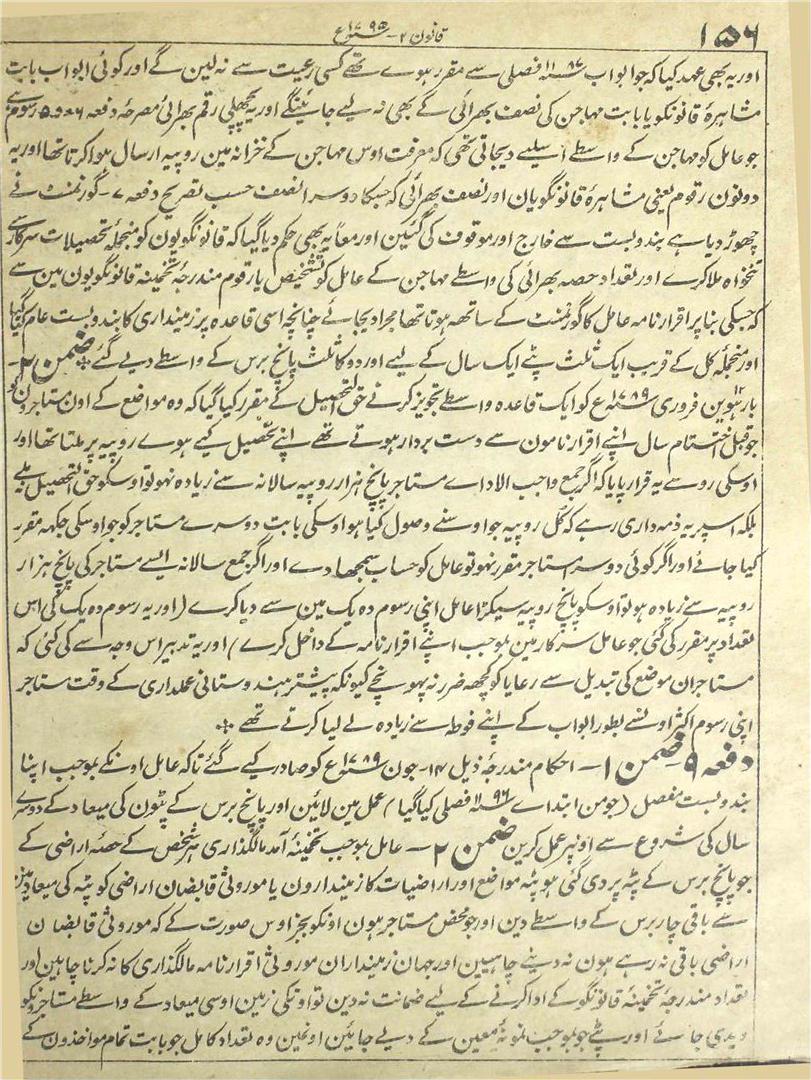 ۱۵۶
قانون ۲ - سنہ ۱۷۹۵ع
اور یہ بھی عہد کیا کہ جو ابواب سنہ ۱۱۸۷ فصلی سے مقرر ہوے تھے کسی رعیت سے نہ لین گے اور کوئی ابواب بابت
مشاہرۂ قانونگو یا بابت مہاجن کی نصف بھرائی کے بھی نہ لیے جائینگے اور یہ پچھلی رقم بھرائی مصرحۂ دفعہ ۵ و ۶ رسوم ہے
جو عامل کو مہاجن کے واسطے اسلیے دیجاتی تھی کہ معرفت اوس مہاجن کے خزانہ مین روپیہ ارسال ہوا کرتا تھا اور یہ
دونون رقوم یعنی مشاہرۂ قانونگویان اور نصف بھرائی کہ جسکا دوسرا نصف حسب تصریح دفعہ ۷ - گورنمنٹ نے
چھوڑ دیا ہے بندوبست سے خارج اور موقوف کی گئین اور معاً یہ بھی حکم دیا گیا کہ قانونگویون کو منجملۂ تحصیلات سرکار سے
تنخواہ ملا کرے اور تعداد حصہ بھرائی کی واسطے مہاجن کے عامل کو تشخیص یا رقوم مندرجۂ تخمینہ قانونگویون مین سے
کہ جسکی بنا پر اقرارنامہ عامل کا گورنمنٹ کے ساتھہ ہوتا تھا مجرا دیجائے چنانچہ اسی قاعدہ پر زمینداری کا بندوبست عام کیا گیا
اور منجملۂ کل کے قریب ایک ثلث پٹے ایک سال کے لیے اور دو کا ثلث پانچ برس کے واسطے دیے گئے ٭ ضمن ۲ -
بارہوین فروری سنہ ۱۷۸۹ع کو ایک قاعدہ واسطے تجویز کرنے حق التحصیل کے مقرر کیا گیا کہ وہ مواضع کے اون مستاجرون کو
جو قبل اختتام سال اپنے اقرارنامون سے دست بردار ہوتے تھے اپنے تحصیل کیے ہوے روپیہ پر ملتا تھا اور
اوسکی رو سے یہ قرار پایا کہ اگر جمع واجب الادا اے مستاجر پانچ ہزار روپیہ سالانہ سے زیادہ نہو تو اوسکو حق التحصیل نہ ملے
بلکہ اسپر یہ ذمہ داری رہے کہ کل روپیہ جو اوسنے وصول کیا ہو اوسکی بابت دوسرے مستاجر کو جو اوسکی جگہہ مقرر
کیا جائے اور اگر کوئی دوسرا مستاجر مقرر نہو تو عامل کو حساب سمجھا دے اور اگر جمع سالانہ ایسے مستاجر کی پانچ ہزار
روپیہ سے زیادہ ہو تو اوسکو پانچ روپیہ سیکڑا عامل اپنی رسوم دہ یک مین سے دیا کرے (اور یہ رسوم دہ یک کی اس
تعداد پر مقرر کی گئی جو عامل سرکار مین بموجب اپنے اقرارنامہ کے داخل کرے) اور یہ تدبیر اس وجہ سے کی گئی کہ
مستاجران موضع کی تبدیل سے رعایا کو کچھہ ضرر نہ پہونچے کیونکہ پیشتر ہندوستانی عملداری کے وقت مستاجر
اپنی رسوم اکثر اونسے بطور ابواب کے اپنے فوطہ سے زیادہ لے لیا کرتے تھے ٭
دفعہ ۹ ضمن ۱ - احکام مندرجۂ ذیل ۱۴ - جون سنہ ۱۷۸۹ع کو صادر کیے گئے تاکہ عامل اونکے بموجب اپنا
بندوبست مفصل (جو من ابتداے سنہ ۱۱۹۶ فصلی کیا گیا) عمل مین لائین اور پانچ برس کے پٹون کی میعاد کے دوسرے
سال کی شروع سے اونپر عمل کرین ضمن ۲ - عامل بموجب تخمینۂ آمد مالگذاری ہر شخص کے حصۂ اراضی کے
جو پانچ برس کے پٹہ پر دی گئی ہو پٹہ مواضع اور اراضیات کا زمیندارون یا موروثی قابضان اراضی کو پٹہ کی میعاد مین
سے باقی چار برس کے واسطے دین اور جو محض مستاجر ہون اونکو بجز اوس صورت کے کہ موروثی قابضان
اراضی باقی نہ رہے ہون نہ دینے چاہیین اور جہان زمینداران موروثی اقرارنامہ مالگذاری کا نہ کرنا چاہین اور
تعداد مندرجۂ تخمینۂ قانونگو کے ادا کرنے کے لیے ضمانت نہ دین تو اونکی زمین اوسی میعاد کے واسطے مستاجر کو
دیدی جائے اور پٹے جو بموجب نمونۂ معین کے دیے جائین اونمین وہ تعداد کامل جو بابت تمام مواخذون کے